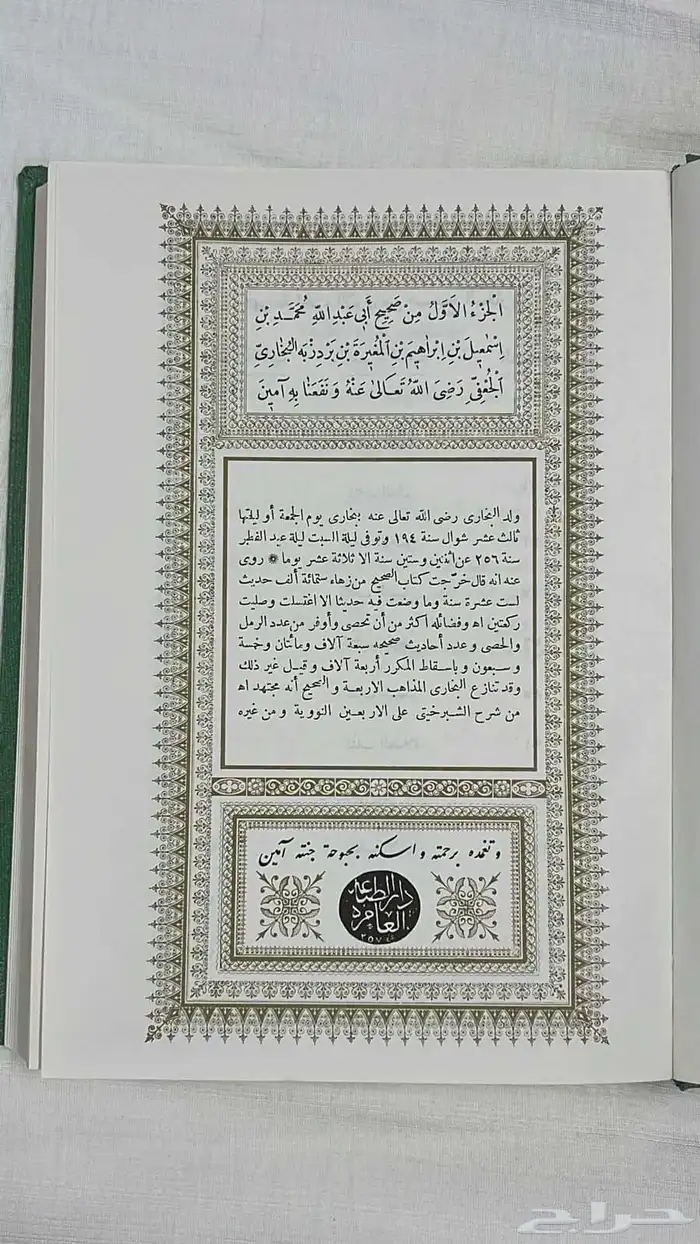 اَلْجُزْءُ الْاَوَّلُ مِنْ صَحِيحِ أَبِي عَبْدِ اللّٰهِ مُحَمَّــدِ بْنِ
اِسْمٰعِيلَ بْنِ اِبْرَاهِيمَ بْنِ الْمُغِيرَةِ بْنِ بَرْدِزْبَه الْبُخَارِيِّ
اَلْجُعْفِيِّ رَضِىَ اللّٰهُ تَعَـالىٰ عَنْهُ وَنَفَعَنَا بِهِ آمِينَ
ولد البخارى رضى الله تعالى عنه ببخارى يوم الجمعة أو ليلتها
ثالث عشر شوال سنة ١٩٤ وتوفى ليلة السبت ليلة عيد الفطر
سنة ٢٥٦ عن اثنتين وستين سنة الا ثلاثة عشر يوما ۞ روى
عنه انه قال خرّجت كتاب الصحيح من زهاء ستمائة ألف حديث
لست عشرة سنة وما وضعت فيه حديثا الا اغتسلت وصليت
ركعتين اه وفضائله اكثر من أن تحصى وأوفر من عدد الرمل
والحصى وعدد أحاديث صحيحه سبعة آلاف ومائتان وخمسة
وسبعون وباسقاط المكرر أربعة آلاف وقيل غير ذلك
وقد تنازع البخارى المذاهب الاربعة والصحيح أنه مجتهد اه
من شرح الشبرخيتى على الاربعين النووية ومن غيره
وتغمده برحمته واسكنه بحبوحة جنته آمين
دار الطباعه
العامره
حراج